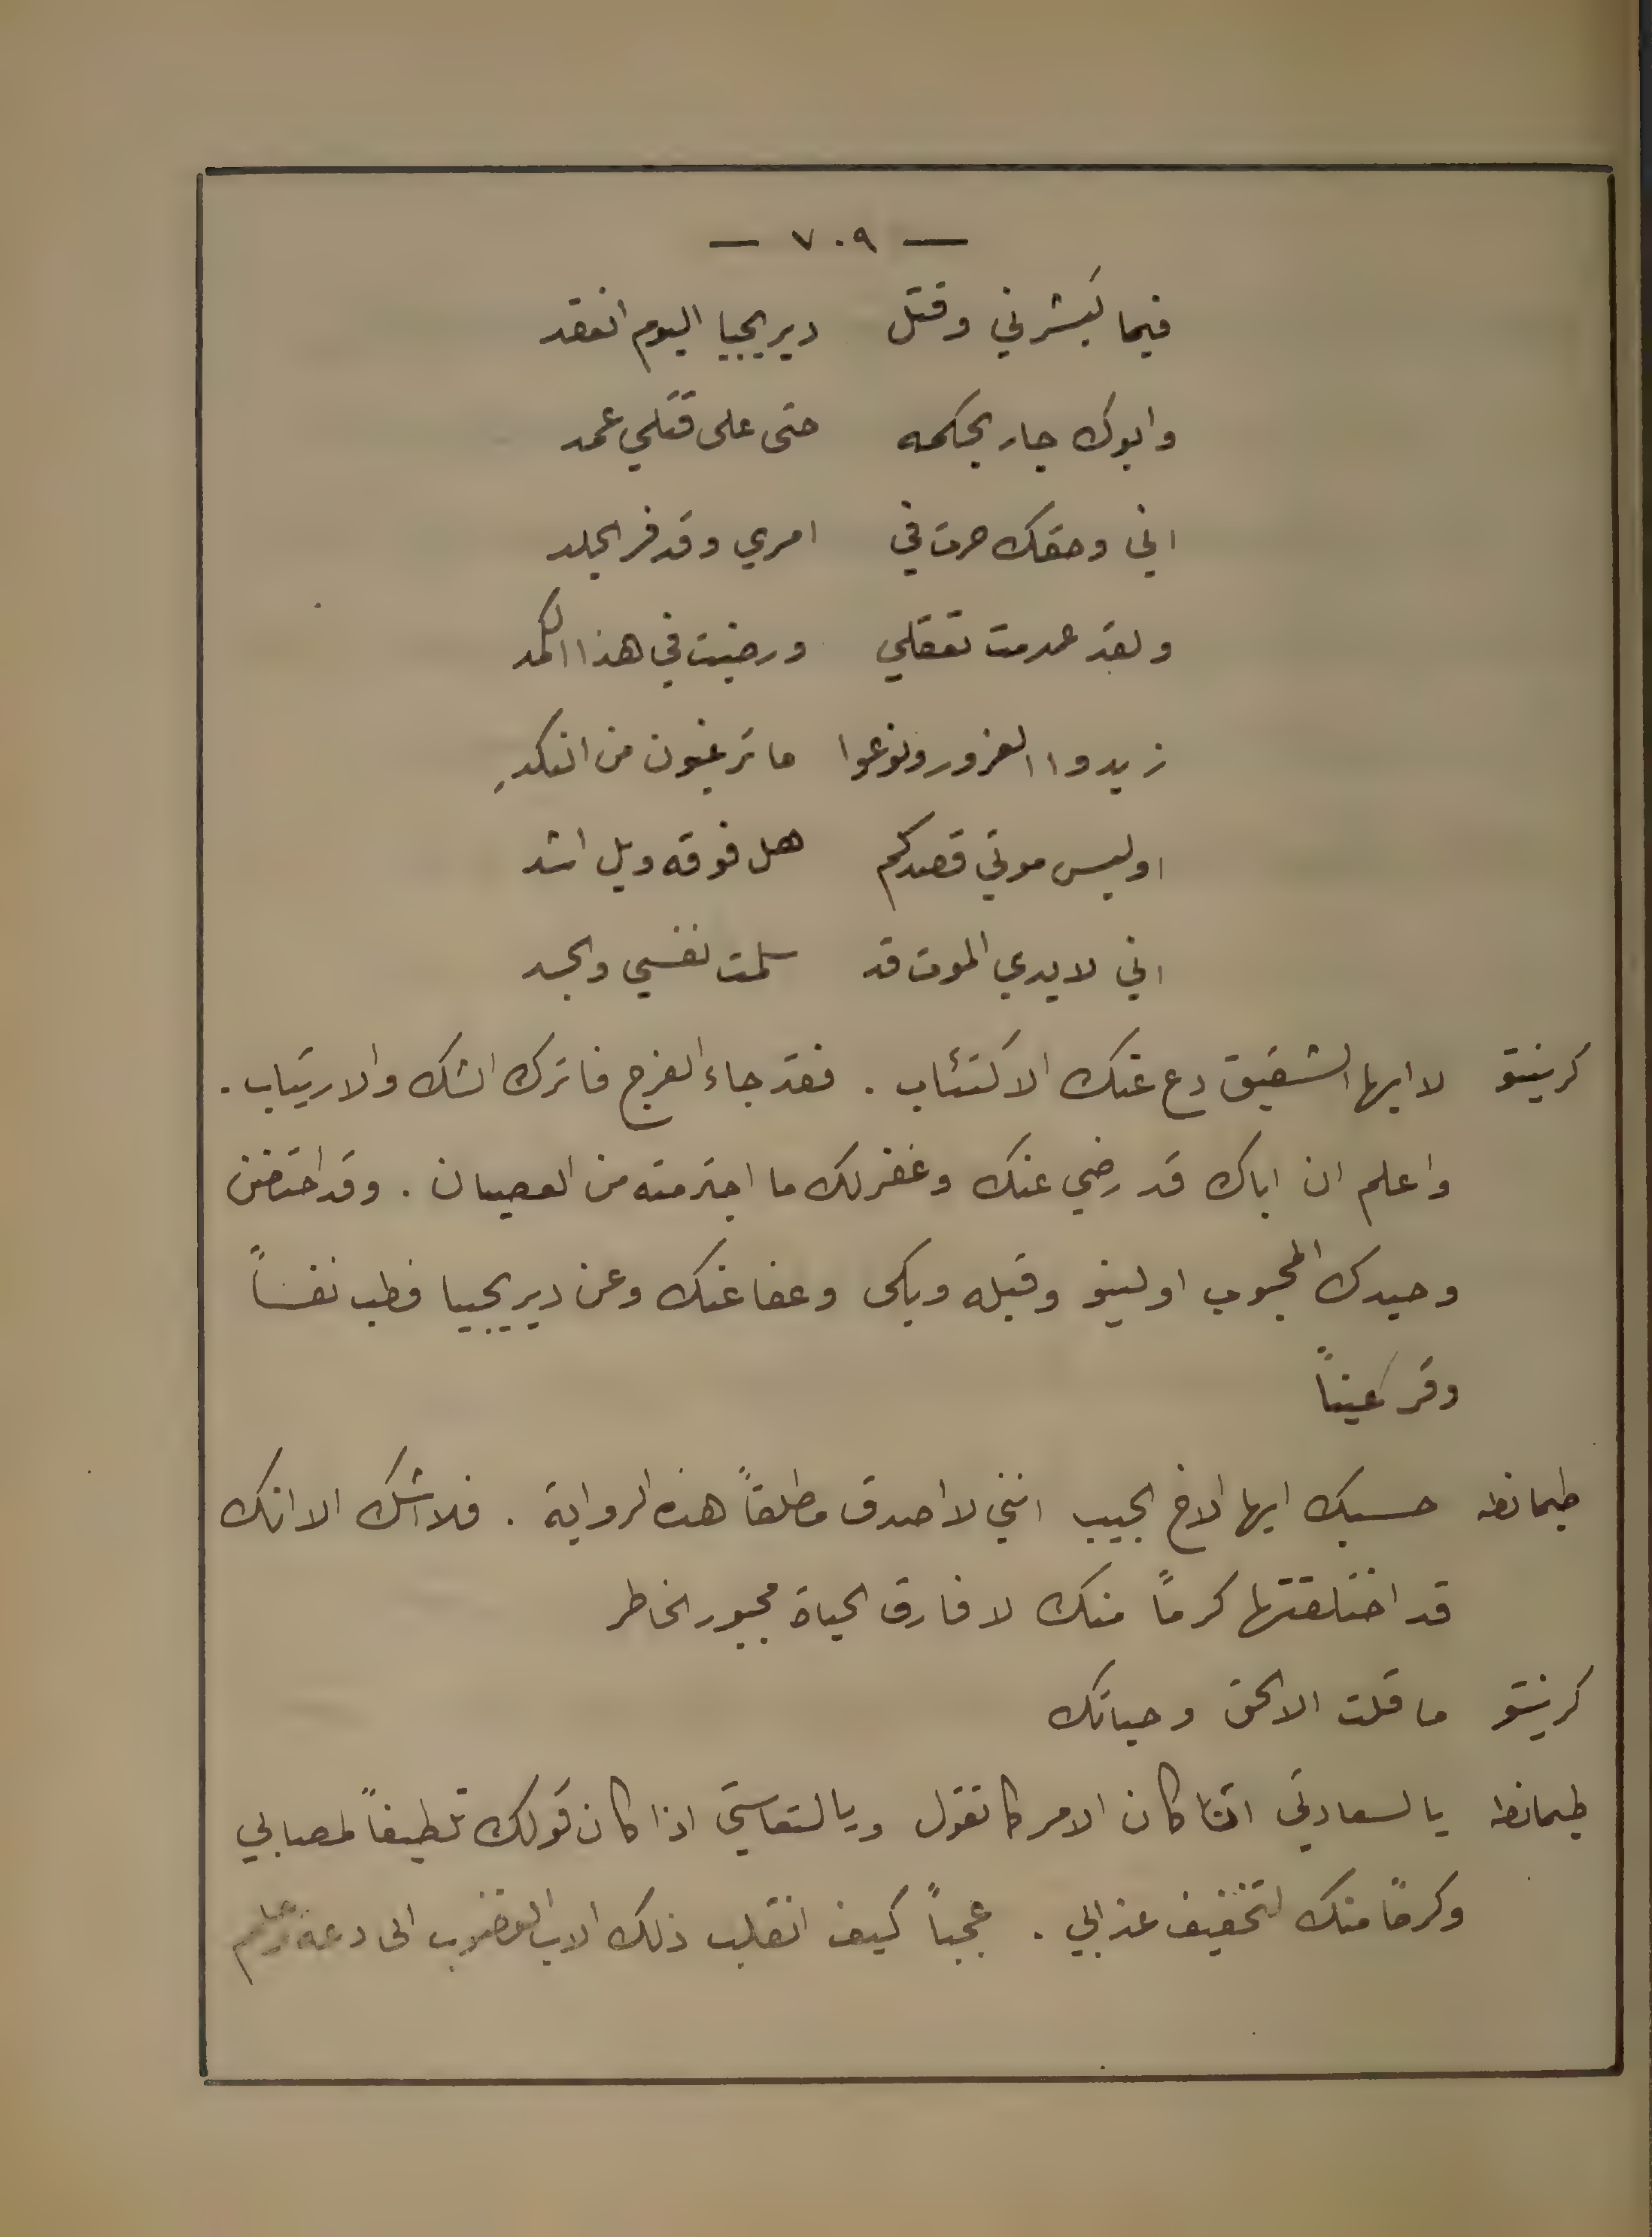 — ٧٠٩ —
فيما تبشرني وقتل ديريجيا اليوم انعقد
وابوك جار بحكمه حتى على قتلي عمد
اني وحقك حرت في امري وقد فر الجلد
ولقد عدمت تعقلي ورضيت في هذا الكمد
زيدوا الغرور ونوعوا ما ترغبون من النكد
اوليس موتي قصدكم هل فوقه ويل اشد
اني لايدي الموت قد سلمت نفسي والجسد
كرينتو لا ايها الشقيق دع عنك الاكتئاب . فقد جاء الفرج فاترك الشك والارتياب .
واعلم ان اباك قد رضي عنك وغفر لك ما اجترمته من العصيان . وقد احتضن
وحيدك المحبوب اولينو وقبله وبكى وعفا عنك وعن ديريجيا فطب نفساً
وقر عيناً
طيمانطه حسبك ايها الاخ الحبيب انني لا اصدق مطلقاً هذه الرواية . فلا اشك الا انك
قد اختلقتها كرماً منك لافارق الحياة مجبور الخاطر
كرينتو ما قلت الا الحق وحياتك
طيمانطه يا لسعادتي اذا كان الامر كما تقول ويا لتعاستي اذا كان قولك تلطيفاً لمصابي
وكرماً منك لتخفيف عذابي . عجباً كيف انقلب ذلك الاب الغضوب الى دعة